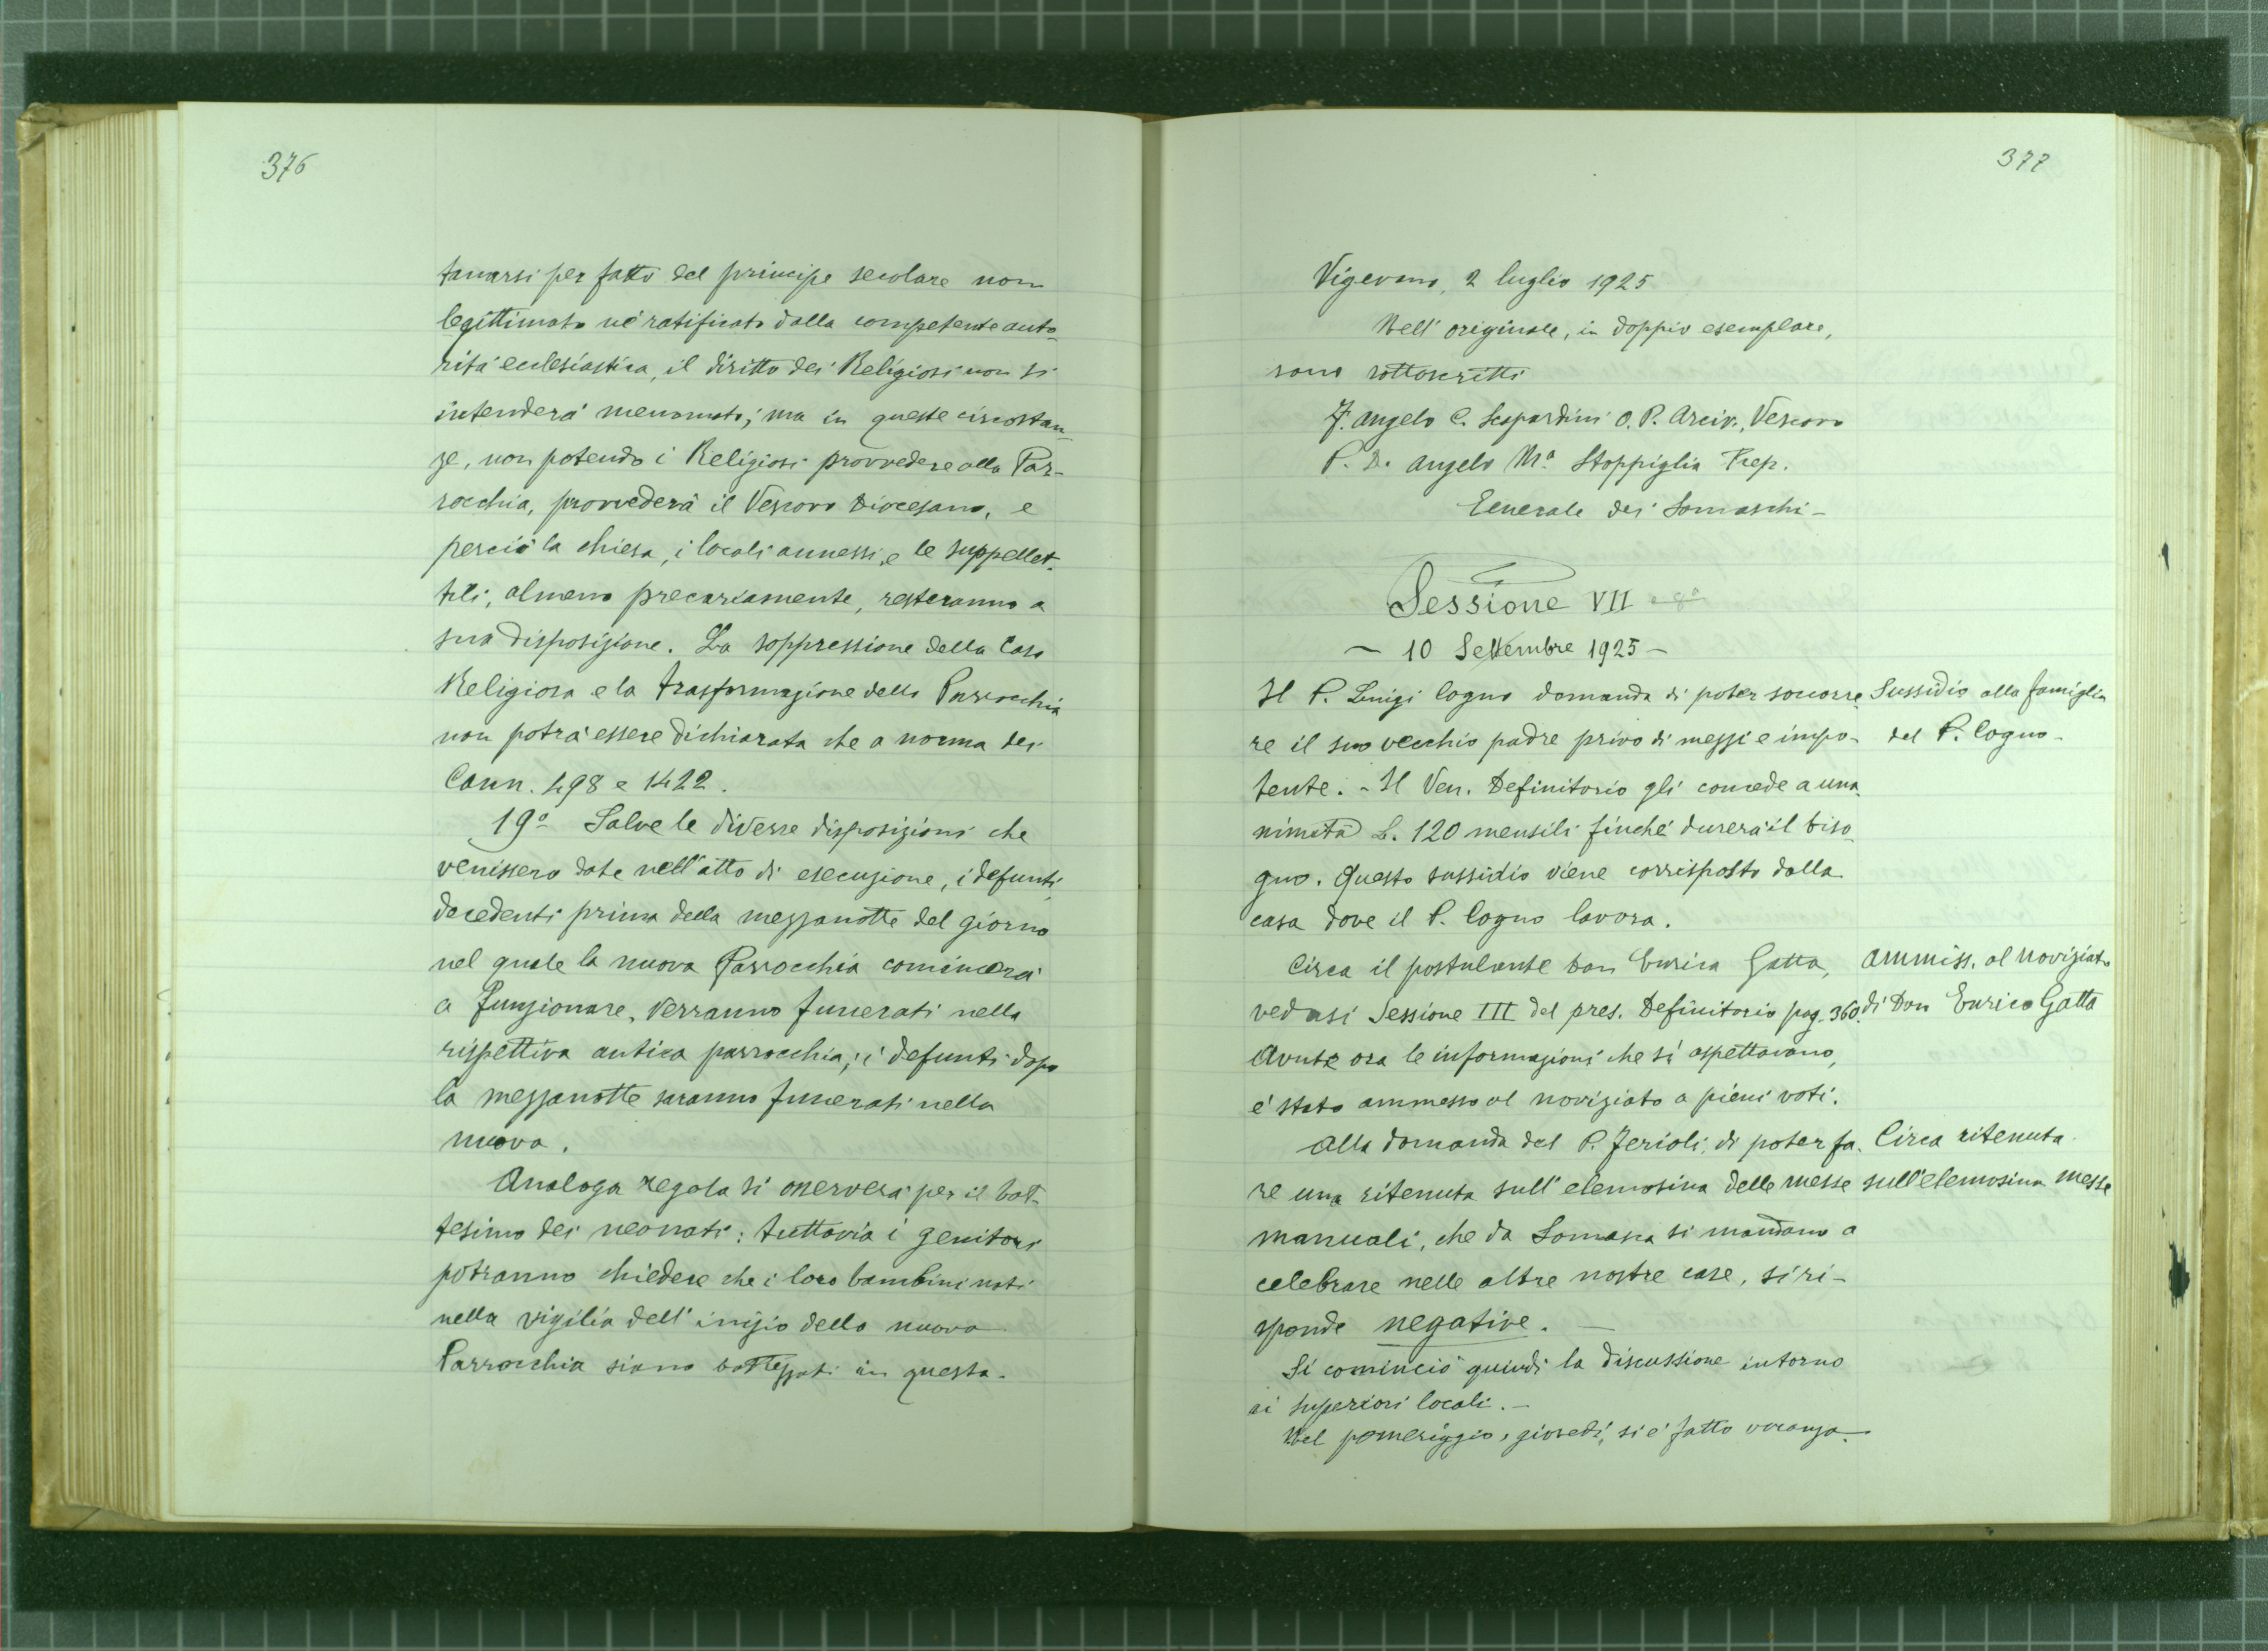 376
tanarsi per fatto del principe secolare non
legittimato nè ratificato dalla competente auto-
rità ecclesiastica, il diritto dei Religiosi non si
intenderà menomato; ma in queste circostan-
ze, non potendo i Religiosi provvedere alla Par-
rocchia, provvederà il Vescovo Diocesano, e
perciò la chiesa, i locali annessi, e le suppellet-
tili, almeno precariamente, resteranno a
sua disposizione. La soppressione della Casa
Religiosa e la trasformazione della Parrocchia
non potrà essere dichiarata che a norma dei
Cann. 498 e 1422.
19º Salve le diverse disposizioni che
venissero date nell'atto di esecuzione, i defunti
decedenti prima della mezzanotte del giorno
nel quale la nuova Parrocchia comincerà
a funzionare, verranno funerati nella
rispettiva antica parrocchia; i defunti dopo
la mezzanotte saranno funerati nella
nuova.
Analoga regola si osserverà per il bat-
tesimo dei neonati: tuttavia i genitori
potranno chiedere che i loro bambini nati
nella vigilia dell'inizio della nuova
Parrocchia siano battezzati in questa.
377
Vigevano, 2 luglio 1925
Nell'originale, in doppio esemplare,
sono sottoscritti
F. Angelo C. Scapardini O. P. Arciv. Vescovo
P. D. Angelo Mª Stoppiglia Prep.
Generale dei Somaschi -
Sessione VII
- 10 Settembre 1925 -
Il P. Luigi Cogno domanda di poter soccorre-
re il suo vecchio padre privo di mezzi e impo-
tente. - Il Ven. Definitorio gli concede a una-
nimità L. 120 mensili finchè durerà il biso-
gno. Questo sussidio viene corrisposto dalla
casa dove il P. Cogno lavora.
Sussidio alla famiglia
del P. Cogno -
Circa il postulante Don Enrico Gatta,
vedasi Sessione III del pres. Definitorio pag. 360.
Avute ora le informazioni che si aspettavano,
è stato ammesso al noviziato a pieni voti.
Ammiss. al noviziato
di Don Enrico Gatta
Alla domanda del P. Ferioli, di poter fa-
re una ritenuta sull'elemosina delle messe
manuali, che da Somasca si mandano a
celebrare nelle altre nostre case, si ri-
sponde negative. -
Circa ritenuta
sull'elemosina messe
Si cominciò quindi la discussione intorno
ai superiori locali. -
Nel pomeriggio, giovedì, si è fatto vacanza.